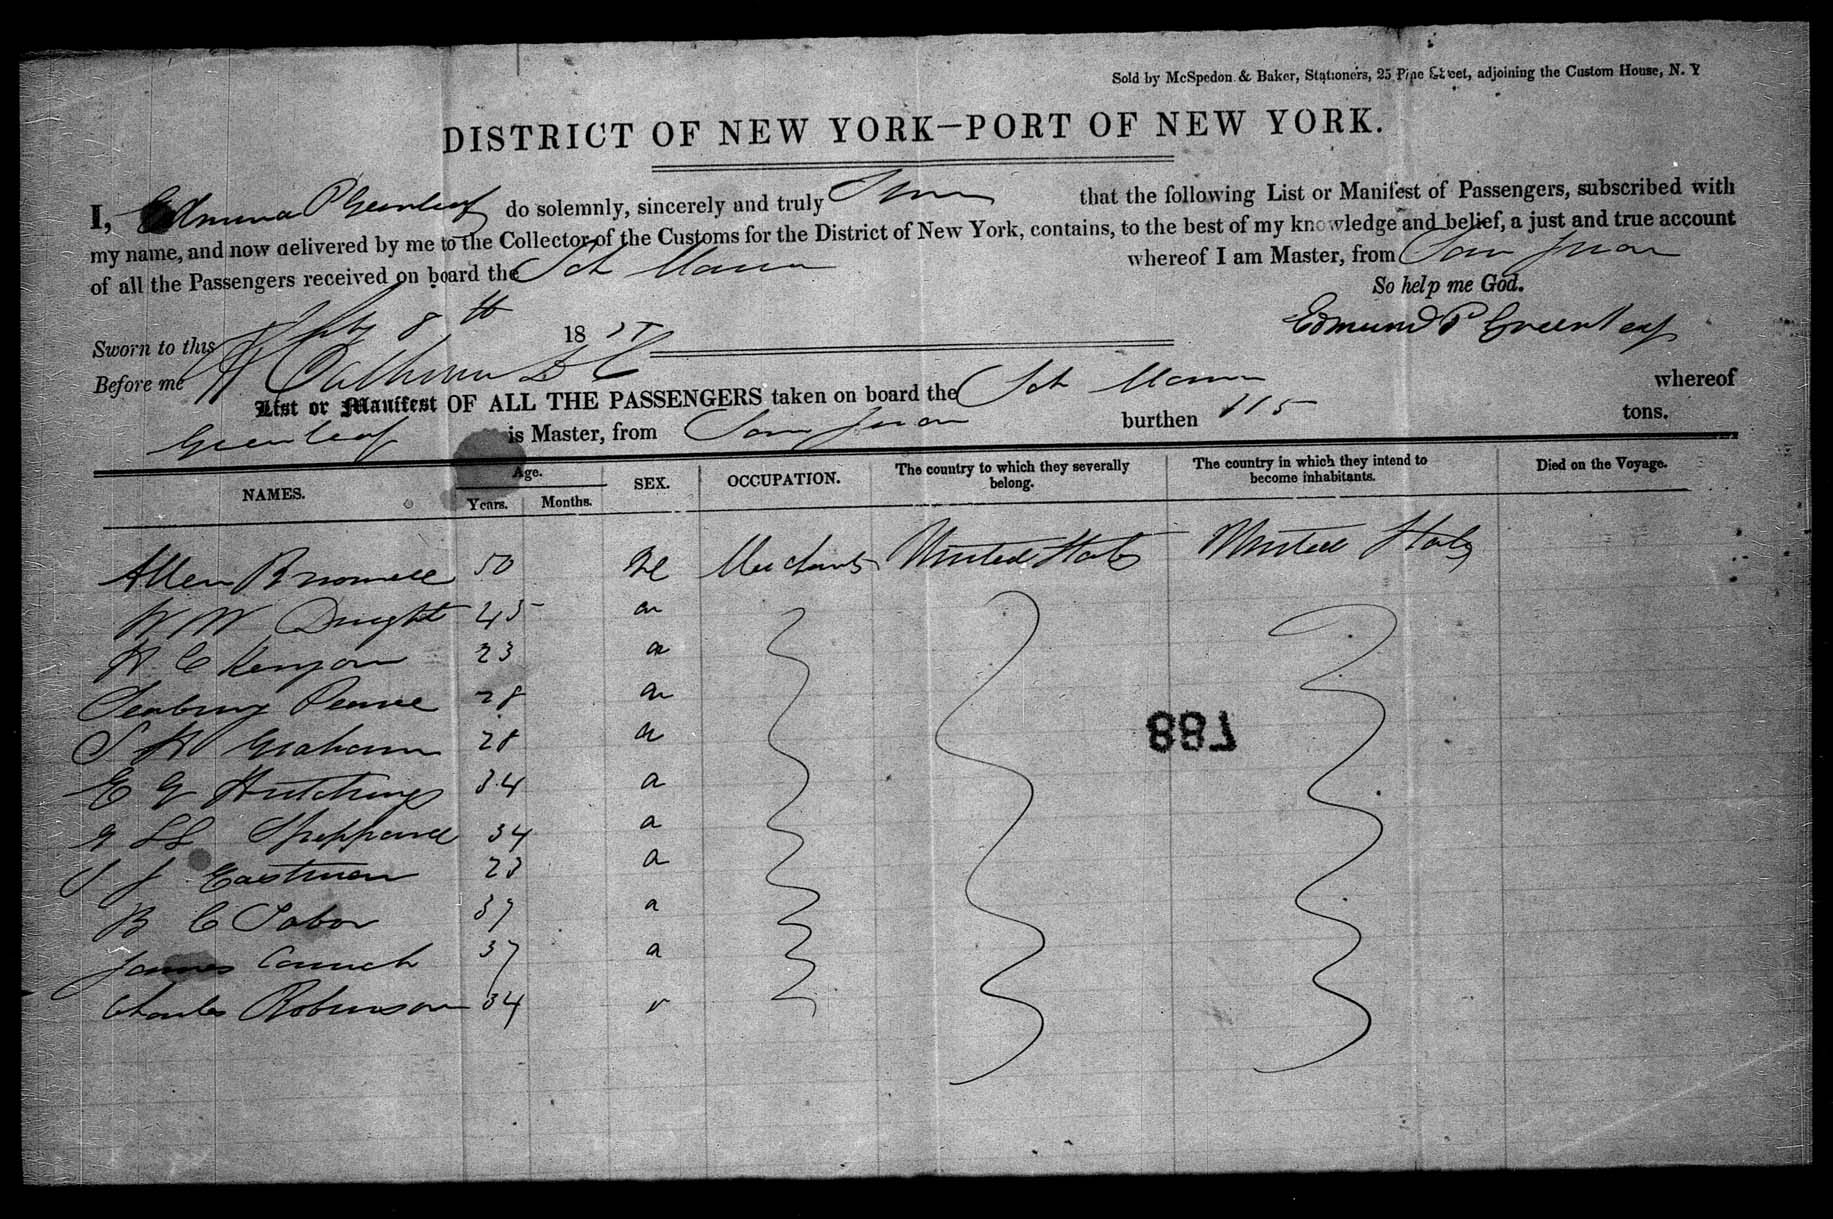 Sold by McSpedon & Baker, Stationers, 25 Pine Street, adjoining the Custom House, N. Y
DISTRICT OF NEW YORK—PORT OF NEW YORK.
I, Edmund P Greenleaf do solemnly, sincerely and truly that the following List or Manifest of Passengers, subscribed with
my name, and now delivered by me to the Collector of the Customs for the District of New York, contains, to the best of my knowledge and belief, a just and true account
of all the Passengers received on board the Sch whereof I am Master, from San Juan
So help me God.
Sworn to this 8th 18 Edmund P Greenleaf
Before me Calhoun D C
List or Manifest OF ALL THE PASSENGERS taken on board the Sch whereof
Greenleaf is Master, from San Juan burthen 115 tons.
NAMES. Age. Years. Months. SEX. OCCUPATION. The country to which they severally belong. The country in which they intend to become inhabitants. Died on the Voyage.
Allen Brownell 50 Merchants United States United States
W W Dwight 45
H C Kenyon 23
Seabury Pearce 28
S H Graham 28
E G Hutchings 34 a
Sheppard 34 a
J Eastman 23 a
B C Tabor 37 a
James Couch 37 a
Charles Robinson 34
788